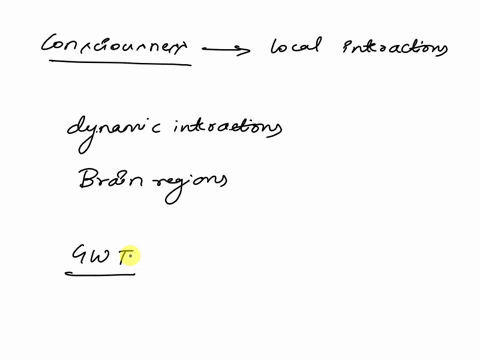 Consciousness → local interactions
dynamic interactions
Brain regions
GWT